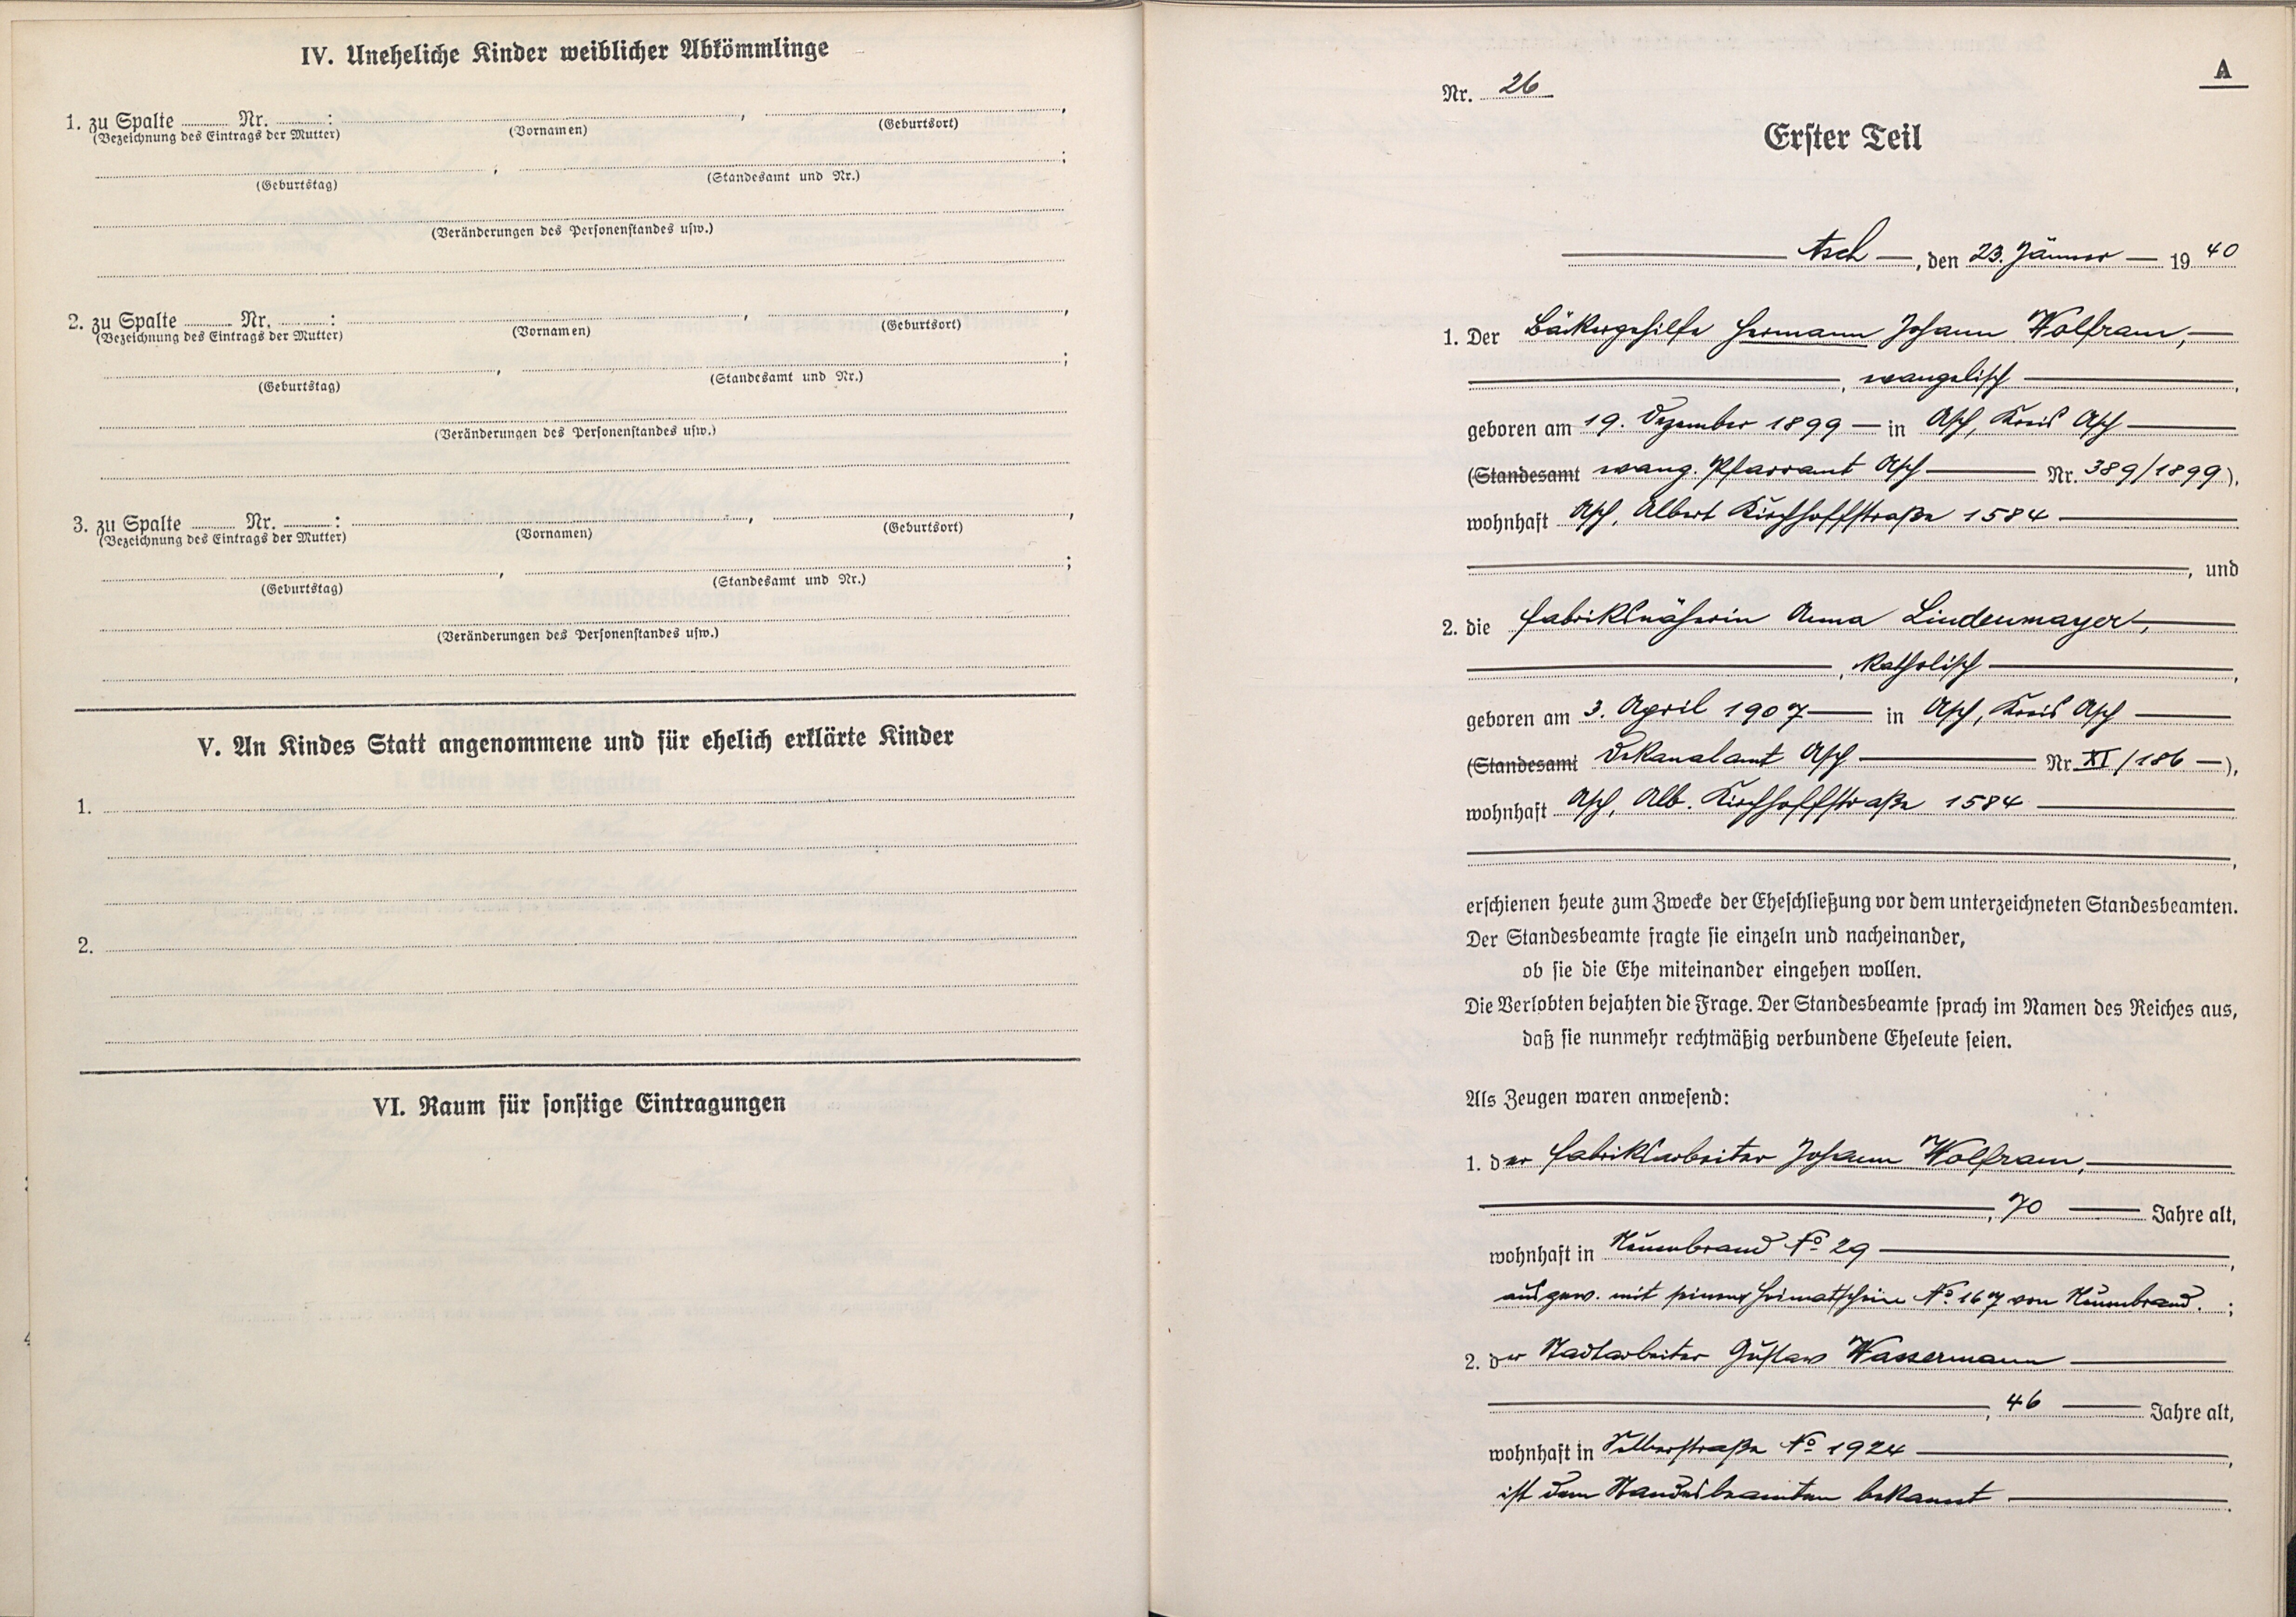 IV. Uneheliche Kinder weiblicher Abkömmlinge
1. zu Spalte ........ Nr. ........:
(Bezeichnung des Eintrags der Mutter) (Vornamen) (Geburtsort)
(Geburtstag) (Standesamt und Nr.)
(Veränderungen des Personenstandes usw.)
2. zu Spalte ........ Nr. ........:
(Bezeichnung des Eintrags der Mutter) (Vornamen) (Geburtsort)
(Geburtstag) (Standesamt und Nr.)
(Veränderungen des Personenstandes usw.)
3. zu Spalte ........ Nr. ........:
(Bezeichnung des Eintrags der Mutter) (Vornamen) (Geburtsort)
(Geburtstag) (Standesamt und Nr.)
(Veränderungen des Personenstandes usw.)
V. An Kindes Statt angenommene und für ehelich erklärte Kinder
1.
2.
VI. Raum für sonstige Eintragungen
A
Nr. 26
Erster Teil
Asch, den 23. Jänner 1940
1. Der Bäckergehilfe Hermann Johann Wolfram,
, evangelisch,
geboren am 19. Dezember 1899 in Asch, Kreis Asch
(Standesamt evang. Pfarramt Asch Nr. 389/1899),
wohnhaft Asch, Albert Kirchhoffstraße 1584
, und
2. die Fabriksnäherin Anna Lindenmayer,
, katholisch,
geboren am 3. April 1907 in Asch, Kreis Asch
(Standesamt Dekanalamt Asch Nr. XI/186),
wohnhaft Asch, Alb. Kirchhoffstraße 1584
,
erschienen heute zum Zwecke der Eheschließung vor dem unterzeichneten Standesbeamten.
Der Standesbeamte fragte sie einzeln und nacheinander,
ob sie die Ehe miteinander eingehen wollen.
Die Verlobten bejahten die Frage. Der Standesbeamte sprach im Namen des Reiches aus,
daß sie nunmehr rechtmäßig verbundene Eheleute seien.
Als Zeugen waren anwesend:
1. der Fabriksarbeiter Johann Wolfram,
, 70 Jahre alt,
wohnhaft in Neuenbrand No 29,
ausgew. mit seinem Heimatscheine No 167 von Neuenbrand.;
2. der Stadtarbeiter Gustav Wassermann
, 46 Jahre alt,
wohnhaft in No 1924,
ist dem Standesbeamten bekannt.